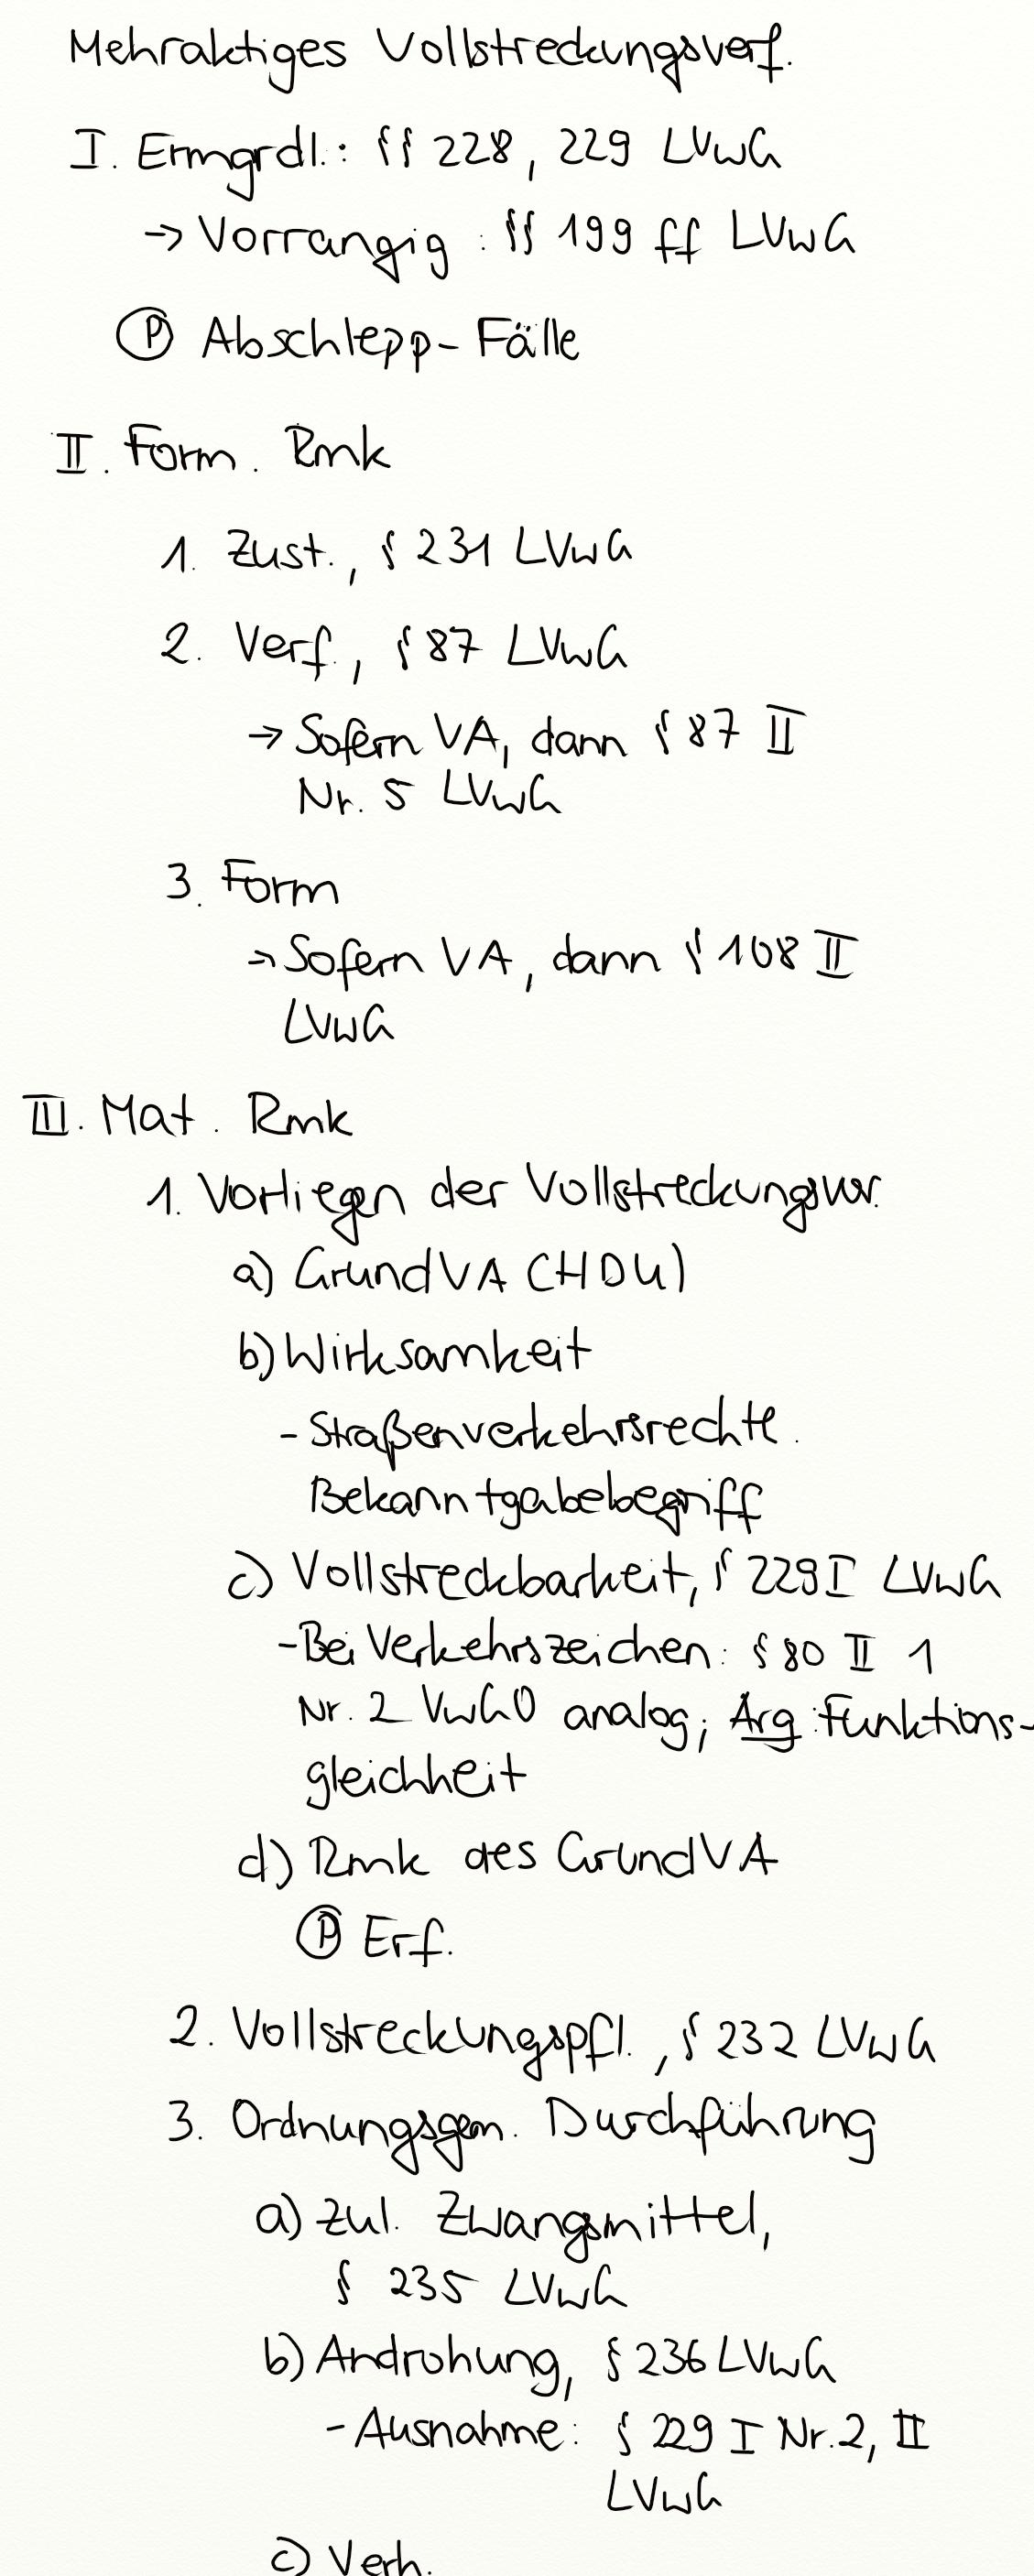 Mehraktiges Vollstreckungsverf.
I. Ermgrdl.: §§ 228, 229 LVwG
→ Vorrangig: §§ 199 ff LVwG
Ⓟ Abschlepp-Fälle
II. Form. Rmk
1. Zust., § 231 LVwG
2. Verf., § 87 LVwG
→ Sofern VA, dann § 87 II
Nr. 5 LVwG
3. Form
→ Sofern VA, dann § 108 II
LVwG
III. Mat. Rmk
1. Vorliegen der Vollstreckungsvor.
a) GrundVA (HDU)
b) Wirksamkeit
- Straßenverkehrsrechtl.
Bekanntgabebegriff
c) Vollstreckbarkeit, § 229 I LVwG
- Bei Verkehrszeichen: § 80 II 1
Nr. 2 VwGO analog; Arg: Funktions-
gleichheit
d) Rmk des GrundVA
Ⓟ Erf.
2. Vollstreckungspfl., § 232 LVwG
3. Ordnungsgem. Durchführung
a) Zul. Zwangsmittel,
§ 235 LVwG
b) Androhung, § 236 LVwG
- Ausnahme: § 229 I Nr. 2, II
LVwG
c) Verh.